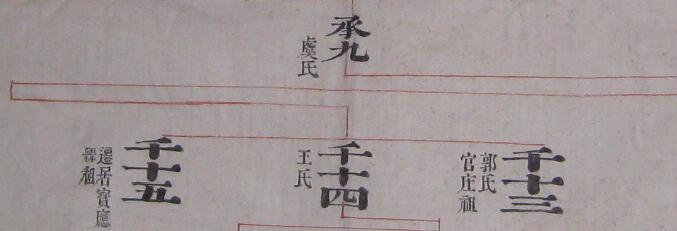 承九
虞氏
千十三
郭氏
官庄祖
千十四
王氏
千十五
遷居寳應
縣祖